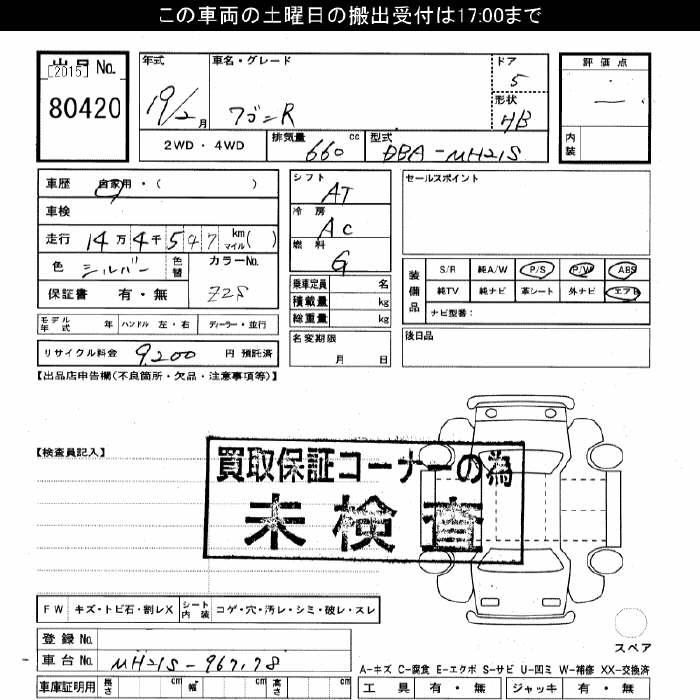 この車両の土曜日の搬出受付は17:00まで
出品 No. [2015]
80420
年式
19/2 月
車名・グレード
ワゴンR
ドア
5
形状
HB
評価点
内装
2WD・4WD
排気量 660 cc
型式 DBA-MH21S
車歴 自家用・( )
車検
走行 14万4千547 km マイル( )
色 シルバー 色替
カラーNo. Z2S
保証書 有・無
シフト AT
冷房 AC
燃料 G
乗車定員 名
積載量 kg
総重量 kg
名変期限
月 日
セールスポイント
装備品
S/R 純A/W P/S P/W ABS
純TV 純ナビ 革シート 外ナビ エアB
ナビ型番:
後日品
モデル年式 年 ハンドル 左・右 ディーラー・並行
リサイクル料金 9,200 円 預託済
【出品店申告欄(不良箇所・欠品・注意事項等)】
【検査員記入】
買取保証コーナーの為
未検査
FW キズ・トビ石・割レX シート内装 コゲ・穴・汚レ・シミ・破レ・スレ
登録 No.
車台 No. MH21S-967178
スペア
A-キズ C-腐食 E-エクボ S-サビ U-凹ミ W-補修 XX-交換済
車庫証明用 長さ cm 幅 cm 高さ cm
工具 有・無 ジャッキ 有・無